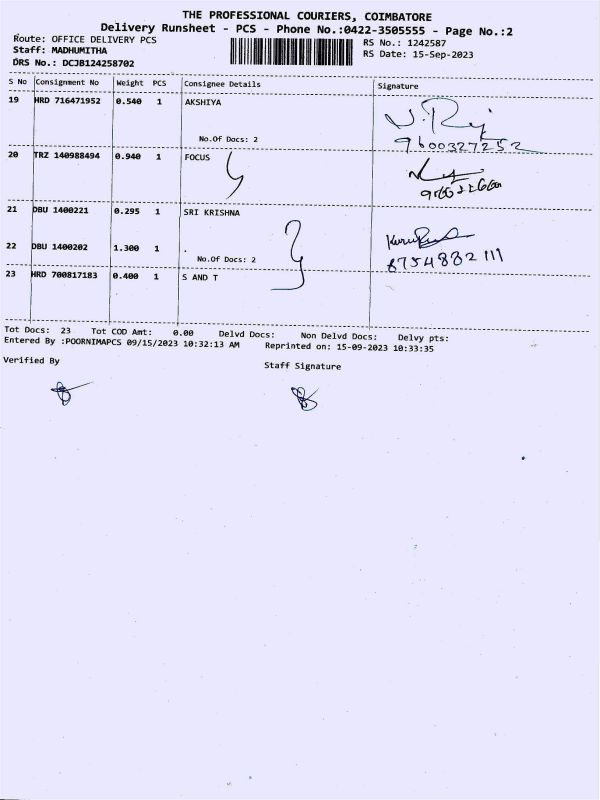 THE PROFESSIONAL COURIERS, COIMBATORE
Delivery Runsheet - PCS - Phone No.:0422-3505555 - Page No.:2
Route: OFFICE DELIVERY PCS
RS No.: 1242587
Staff: MADHUMITHA
RS Date: 15-Sep-2023
DRS No.: DCJB124258702
S No Consignment No Weight PCS Consignee Details Signature
19 HRD 716471952 0.540 1 AKSHIYA
No.Of Docs: 2
9600327252
20 TRZ 140988494 0.940 1 FOCUS
21 DBU 1400221 0.295 1 SRI KRISHNA
22 DBU 1400202 1.300 1 .
No.Of Docs: 2
8754882111
23 HRD 700817183 0.400 1 S AND T
Tot Docs: 23 Tot COD Amt: 0.00 Delvd Docs: Non Delvd Docs: Delvy pts:
Entered By :POORNIMAPCS 09/15/2023 10:32:13 AM Reprinted on: 15-09-2023 10:33:35
Verified By
Staff Signature